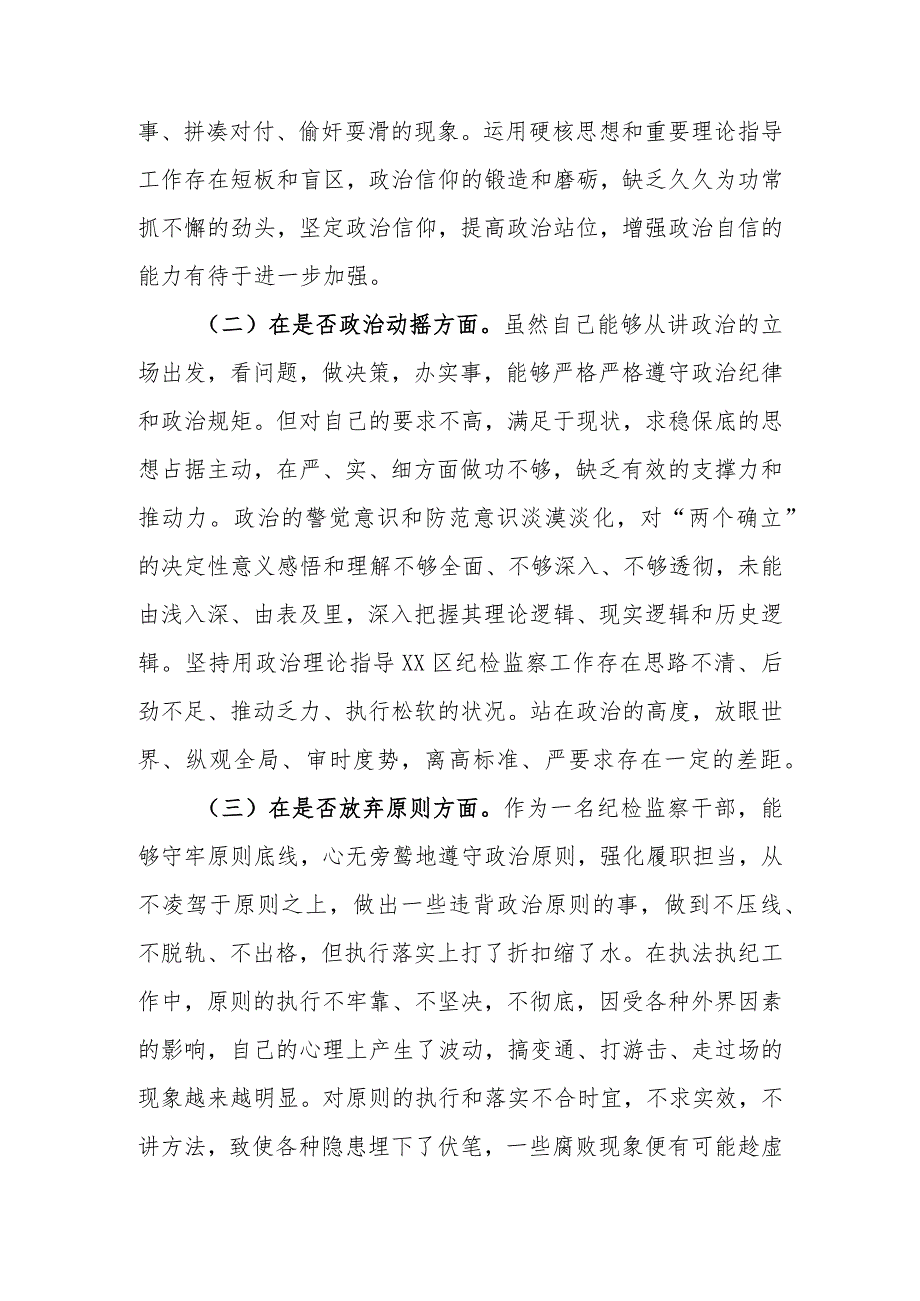 事、拼凑对付、偷奸耍滑的现象。运用硬核思想和重要理论指导
工作存在短板和盲区，政治信仰的锻造和磨砺，缺乏久久为功常
抓不懈的劲头，坚定政治信仰，提高政治站位，增强政治自信的
能力有待于进一步加强。
（二）在是否政治动摇方面。虽然自己能够从讲政治的立
场出发，看问题，做决策，办实事，能够严格严格遵守政治纪律
和政治规矩。但对自己的要求不高，满足于现状，求稳保底的思
想占据主动，在严、实、细方面做功不够，缺乏有效的支撑力和
推动力。政治的警觉意识和防范意识淡漠淡化，对“两个确立”
的决定性意义感悟和理解不够全面、不够深入、不够透彻，未能
由浅入深、由表及里，深入把握其理论逻辑、现实逻辑和历史逻
辑。坚持用政治理论指导 XX 区纪检监察工作存在思路不清、后
劲不足、推动乏力、执行松软的状况。站在政治的高度，放眼世
界、纵观全局、审时度势，离高标准、严要求存在一定的差距。
（三）在是否放弃原则方面。作为一名纪检监察干部，能
够守牢原则底线，心无旁鹜地遵守政治原则，强化履职担当，从
不凌驾于原则之上，做出一些违背政治原则的事，做到不压线、
不脱轨、不出格，但执行落实上打了折扣缩了水。在执法执纪工
作中，原则的执行不牢靠、不坚决，不彻底，因受各种外界因素
的影响，自己的心理上产生了波动，搞变通、打游击、走过场的
现象越来越明显。对原则的执行和落实不合时宜，不求实效，不
讲方法，致使各种隐患埋下了伏笔，一些腐败现象便有可能趁虚